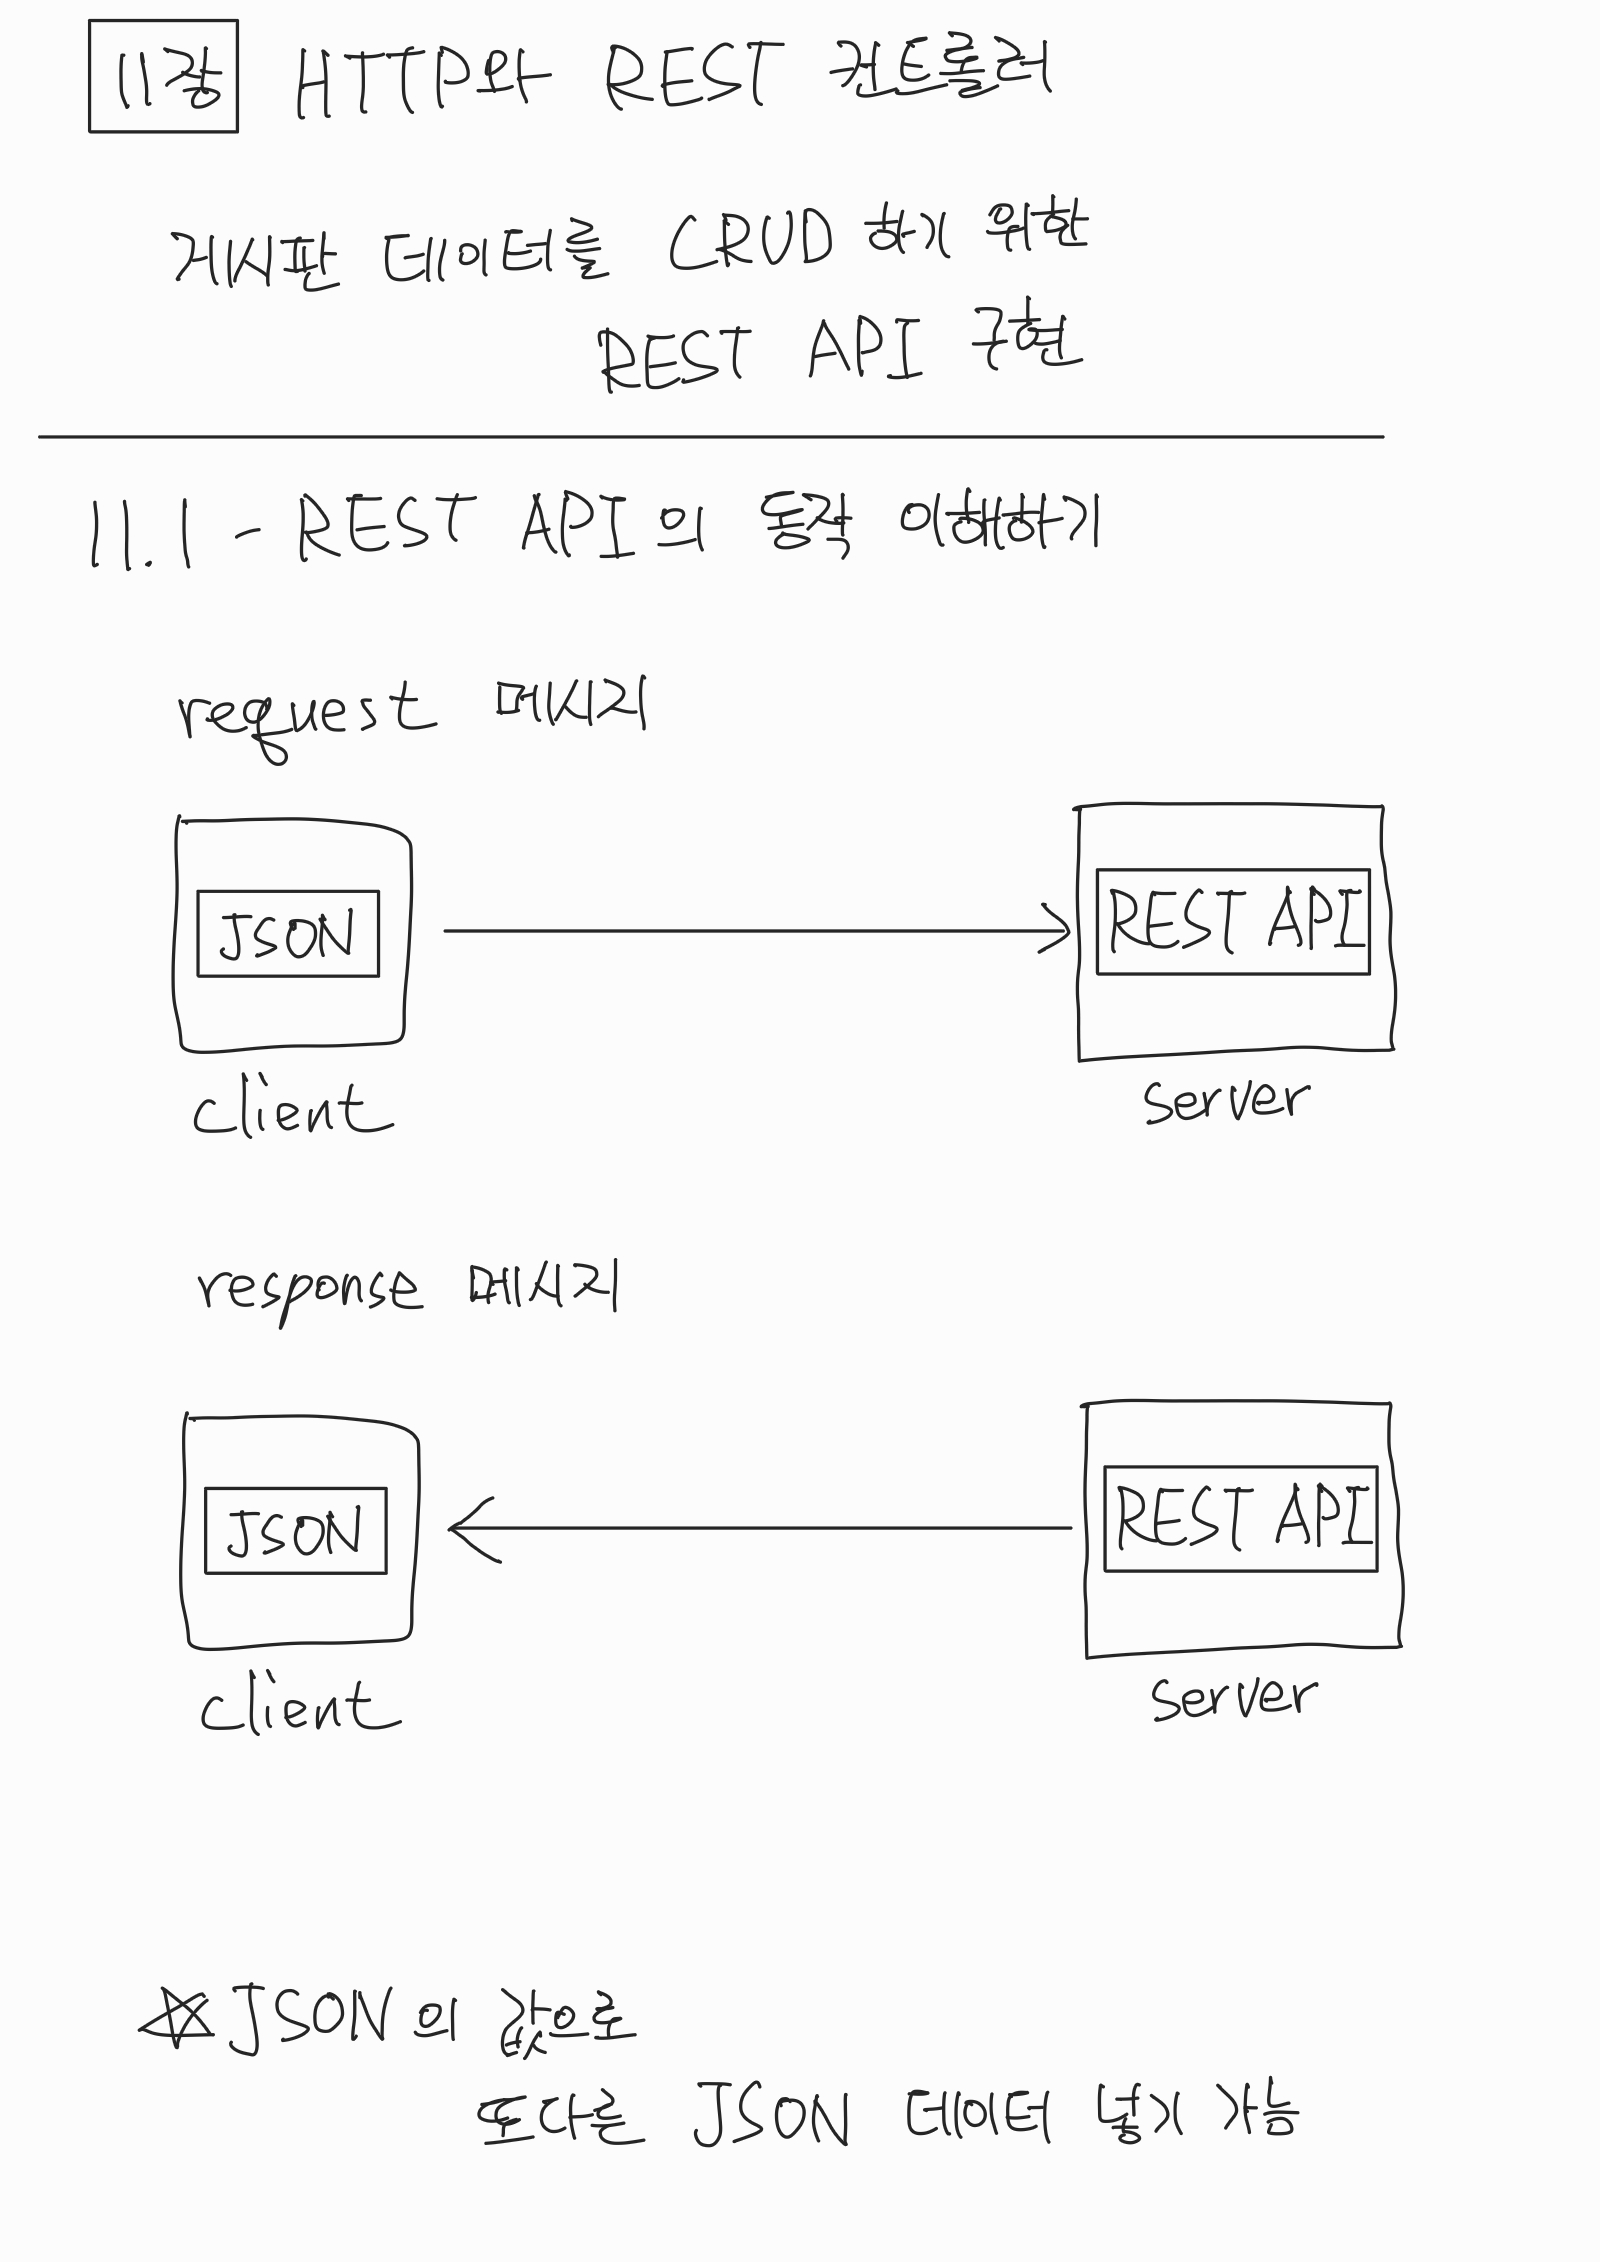 11강 HTTP와 REST 컨트롤러
게시판 데이터를 CRUD 하기 위한
REST API 구현
11.1 - REST API의 동작 이해하기
request 메시지
JSON
REST API
client
server
response 메시지
JSON
REST API
client
server
☆ JSON의 값으로
또다른 JSON 데이터 넣기 가능